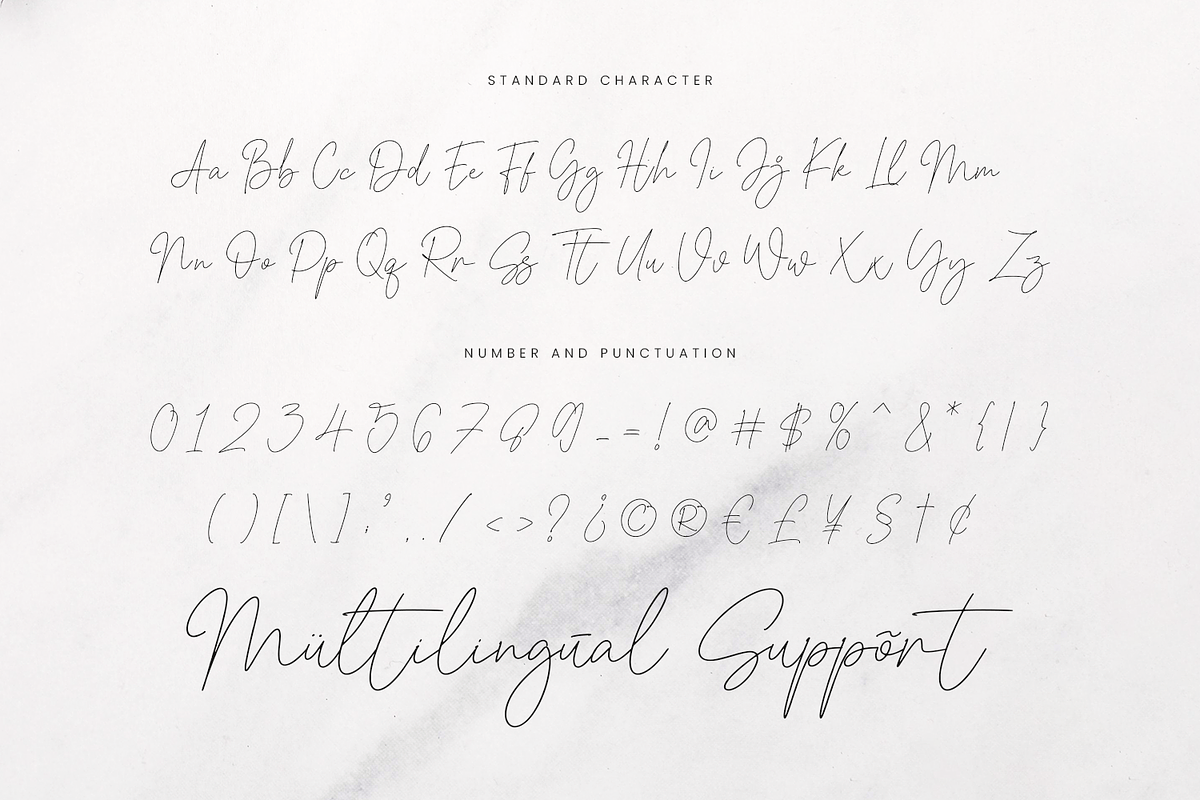 STANDARD CHARACTER
Aa Bb Cc Dd Ee Ff Gg Hh Ii Jj Kk Ll Mm
Nn Oo Pp Qq Rr Ss Tt Uu Vv Ww Xx Yy Zz
NUMBER AND PUNCTUATION
0 1 2 3 4 5 6 7 8 9 - = ! @ # $ % ^ & * { | }
( ) [ \ ] ; ' , . / < > ? ¿ © ® € £ ¥ § † ¢
Mültilingūal Suppõrt